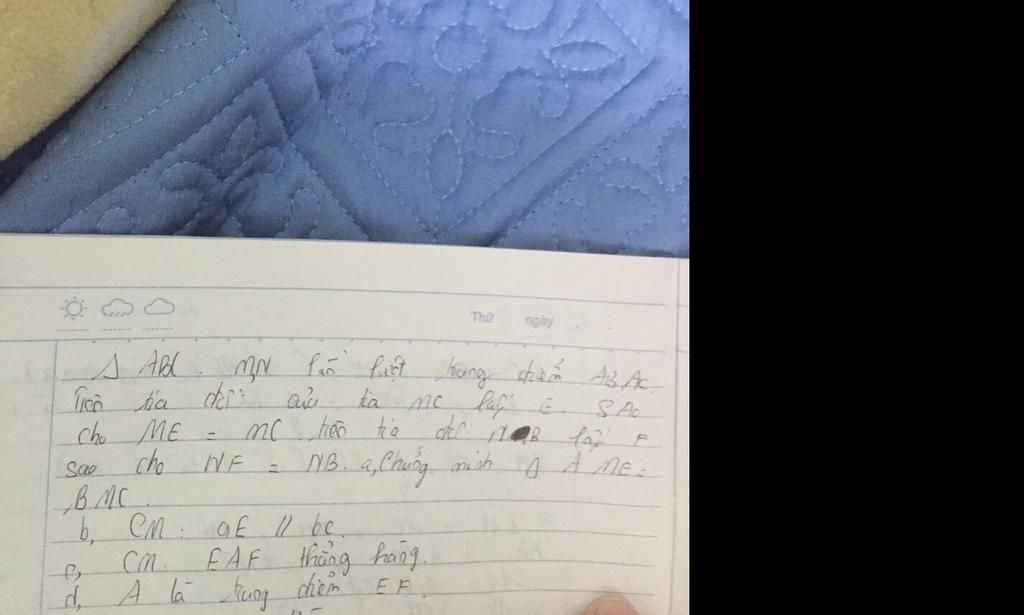 Thứ ngày
Δ ABC. M,N lần lượt trung điểm AB, AC.
Trên tia đối của tia MC lấy E. SAO
cho ME = MC. trên tia đối NB lấy F
sao cho NF = NB. a, Chứng minh Δ AME =
BMC.
b, CM: aE // bc.
c, CM. EAF thẳng hàng.
d, A là trung điểm EF.